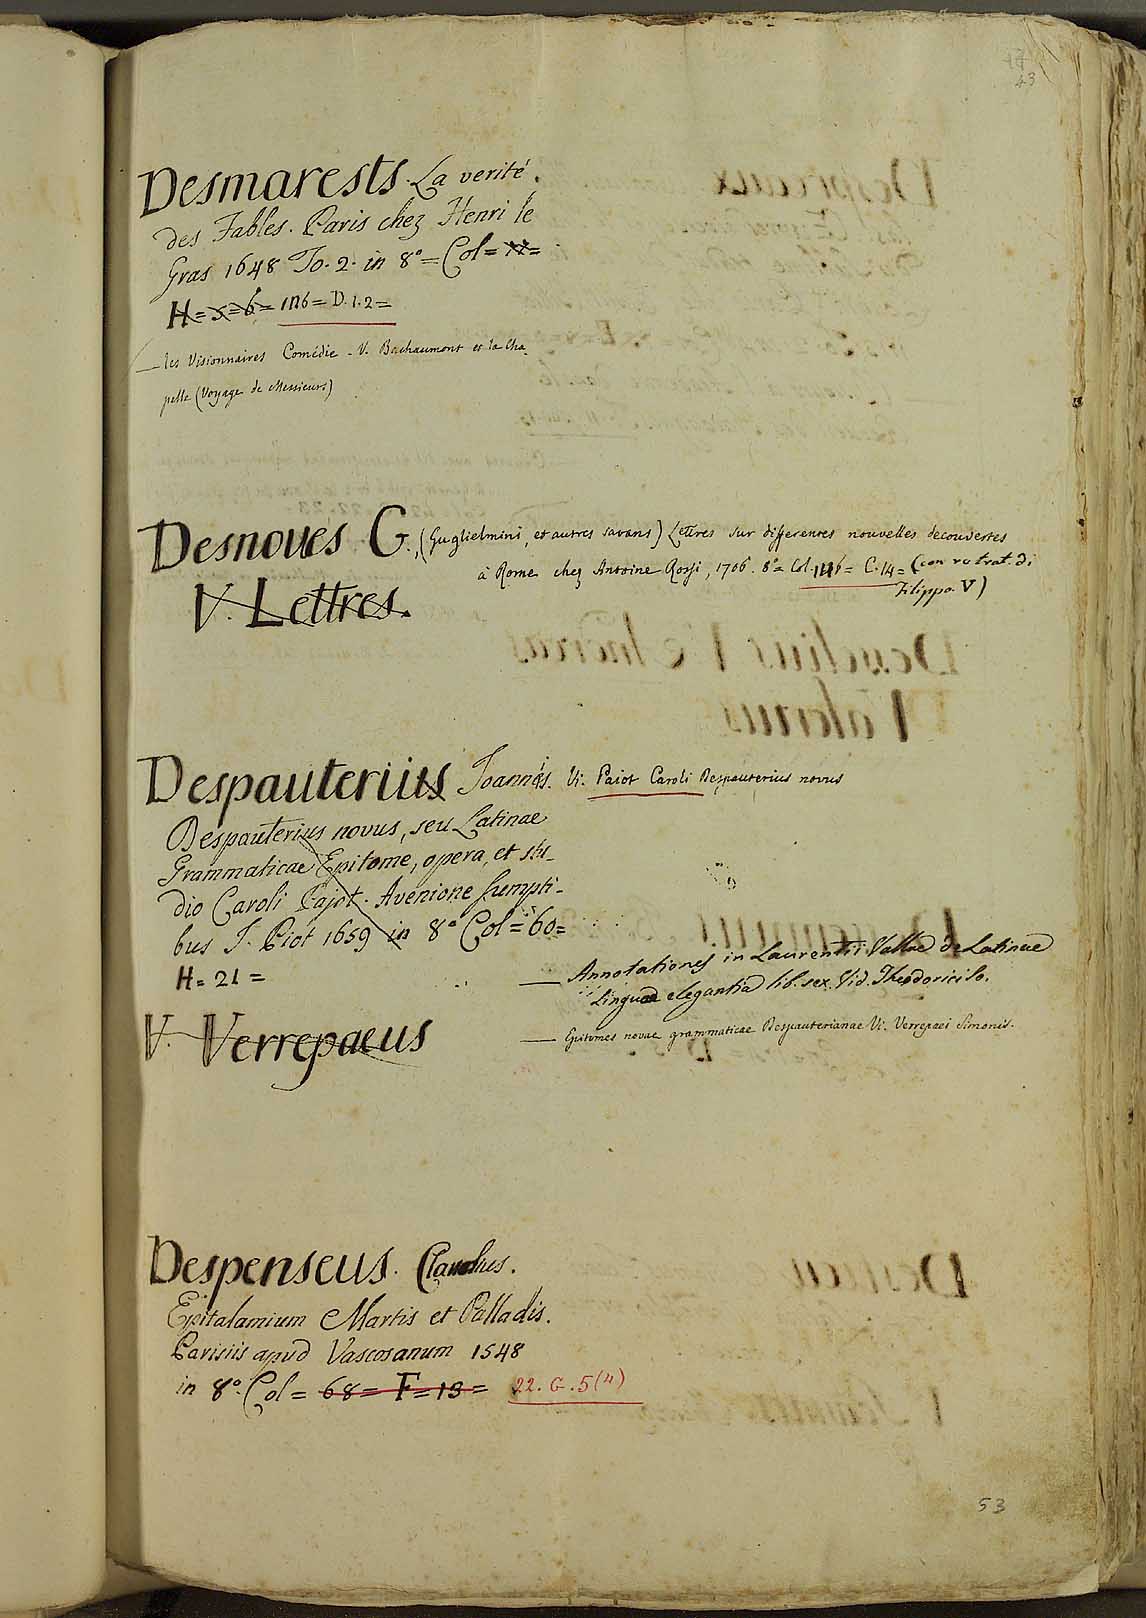 43
Desmarests. La verité
des Fables. Paris chez Henri le
Gras 1648 To. 2. in 8° = Col =
H = 5 = 6 = 116 = D. 1. 2 =
— les Visionnaires Comédie - V. Bachaumont et la Cha
pelle (Voyage de Messieurs)
Desnoues G. (Guglielmini, et autres savans) Lettres sur differentes nouvelles decouvertes
à Rome chez Antoine Rossi, 1706. 8° = Col. 116 = C. 14 = (con ritrat. di
Filippo V)
V. Lettres.
Despauterius Joannes. Vi. Paiot Caroli Despauterius novus
Despauterius novus, seu Latinae
Grammaticae Epitome, opera, et stu-
dio Caroli Pajot. Avenione sumpti-
bus J. Piot 1659 in 8° Col = 60 =
H = 21 =
— Annotationes in Laurentii Vallae de Latinae
Linguae elegantia lib. sex. Vid. Theodorici Jo.
V. Verrepaeus
— Epitomes novae grammaticae Despauterianae Vi. Verrepaei Simonis.
Despenseus. Claudius.
Epitalamium Martis et Palladis.
Parisiis apud Vascosanum 1548
in 8°. Col = 68 = F = 13 = 22. G. 5 (4)
53